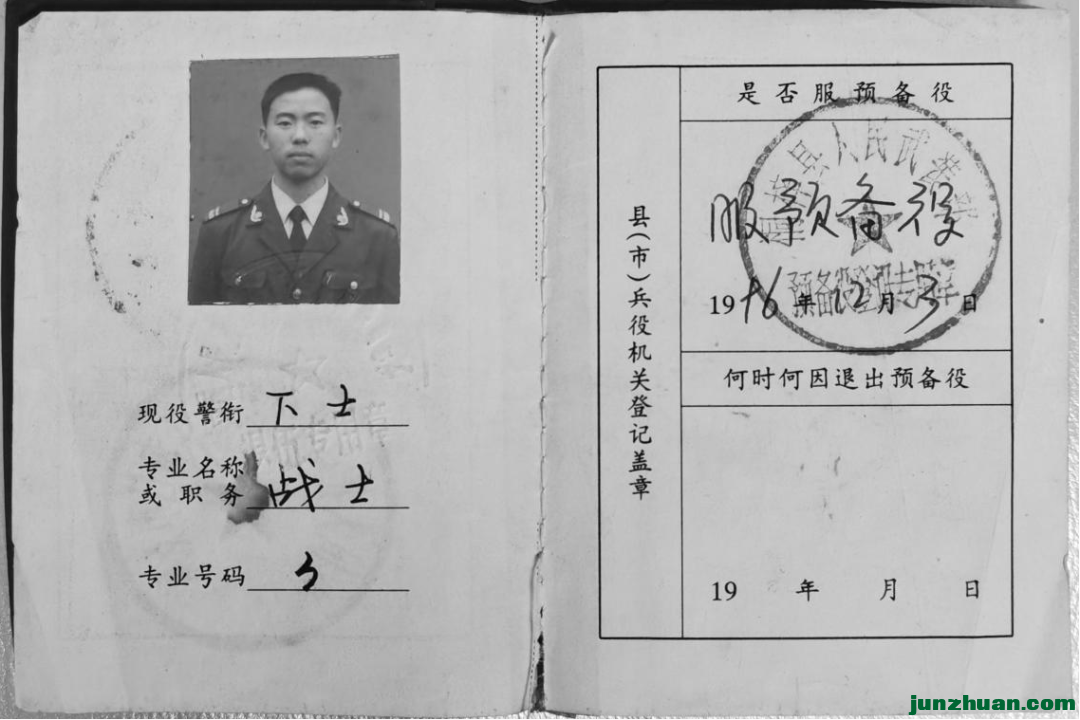 现役警衔 下士
专业名称
或职务 战士
专业号码
县(市)兵役机关登记盖章
是否服预备役
县人民武装部
服预备役
预备役登记专用章
1996年12月3日
何时何因退出预备役
19 年 月 日
junzhuan.com